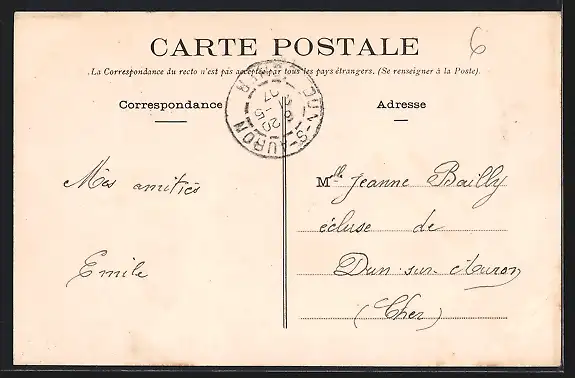 6
CARTE POSTALE
La Correspondance du recto n'est pas acceptée par tous les pays étrangers. (Se renseigner à la Poste).
DUN-S-AURON
20-5
07
Correspondance
Adresse
Mes amitiés
Emile
Mlle Jeanne Bailly
écluse de
Dun-sur-Auron
(Cher)